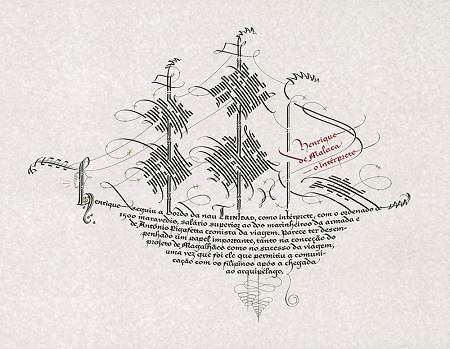 Henrique
de Malaca
o intérprete
Henrique seguiu a bordo da nau TRINIDAD, como intérprete, com o ordenado de
1500 maravedis, salário superior ao dos marinheiros da armada e
de António Pigafetta cronista da viagem. Parece ter desem-
penhado um papel importante, tanto na conceção do
projeto de Magalhães como no sucesso da viagem,
uma vez que foi ele que permitiu a comuni-
cação com os filipinos após a chegada
ao arquipélago.